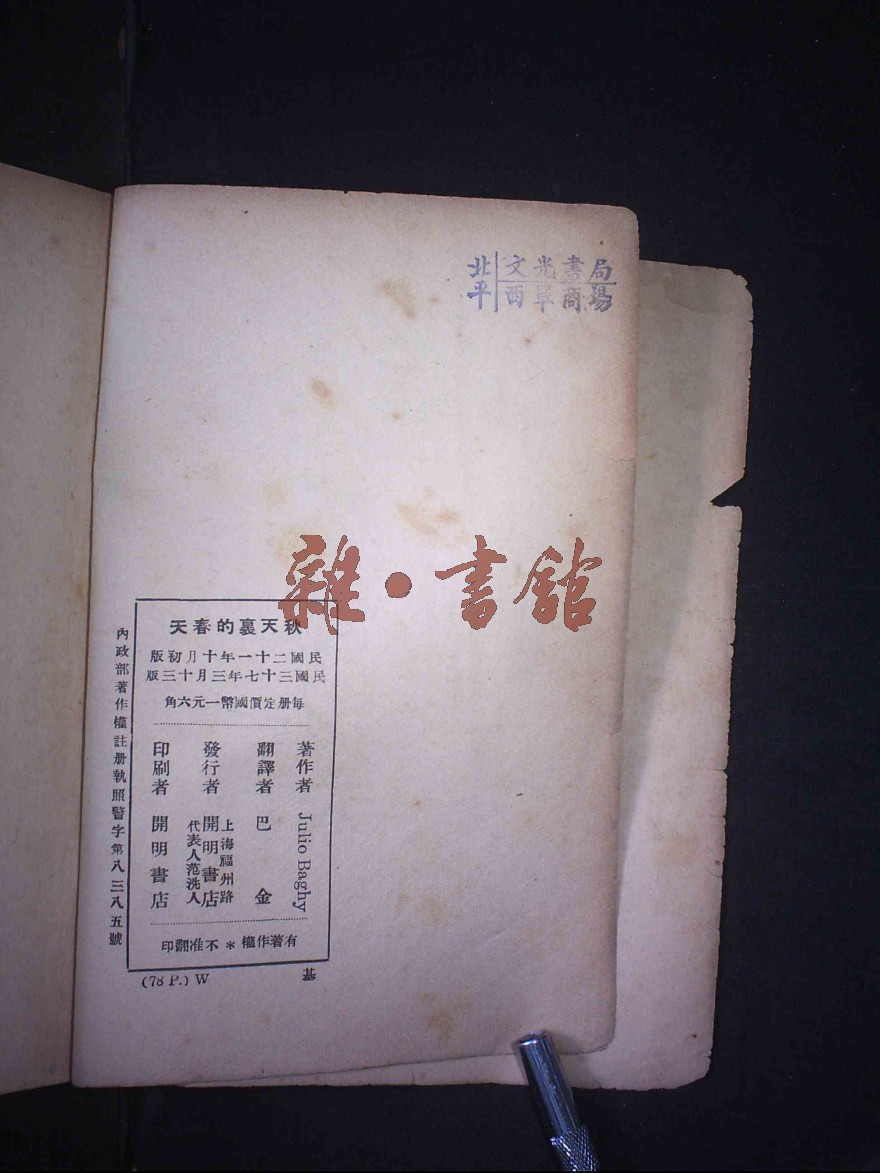 北平
文光書局
西單商場
雜·書館
秋天裏的春天
民國二十一年十月初版
民國三十七年三月十三版
每册定價國幣一元六角
著作者 Julio Baghy
翻譯者 巴金
發行者 上海福州路
開明書店
代表人范洗人
印刷者 開明書店
有著作權＊不准翻印
內政部著作權註册執照警字第八三八五號
(78 P.) W
基